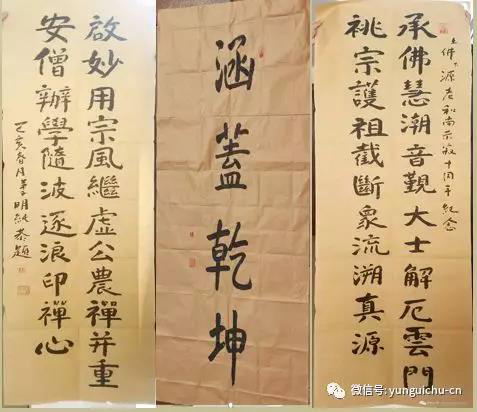 上佛下源老和尚示寂十周年紀念
承佛慧潮音觀大士解厄雲門
祧宗護祖截斷衆流溯真源
涵蓋乾坤
啟妙用宗風繼虛公農禪并重
安僧辦學隨波逐浪印禪心
己亥春月弟子明恭題
微信号: yunguichu-cn